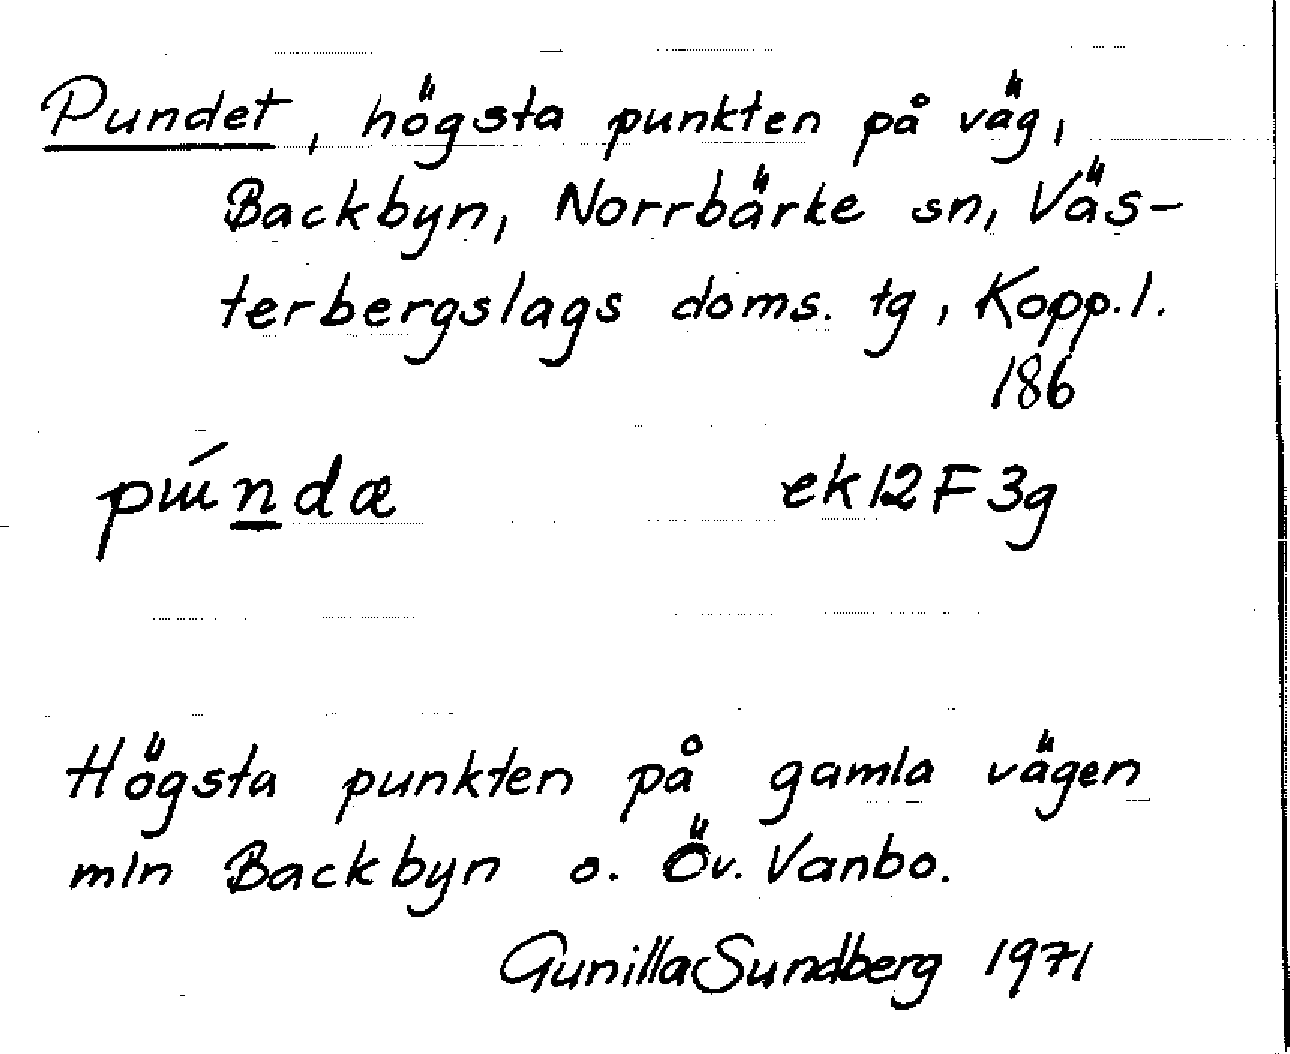 Pundet, högsta punkten på väg,
Backbyn, Norrbärke sn, Väs-
terbergslags doms. tg, Kopp. l.
186
pɯ́ndæ ek 12 F 3g
Högsta punkten på gamla vägen
mln Backbyn o. Öv. Vanbo.
Gunilla Sundberg 1971